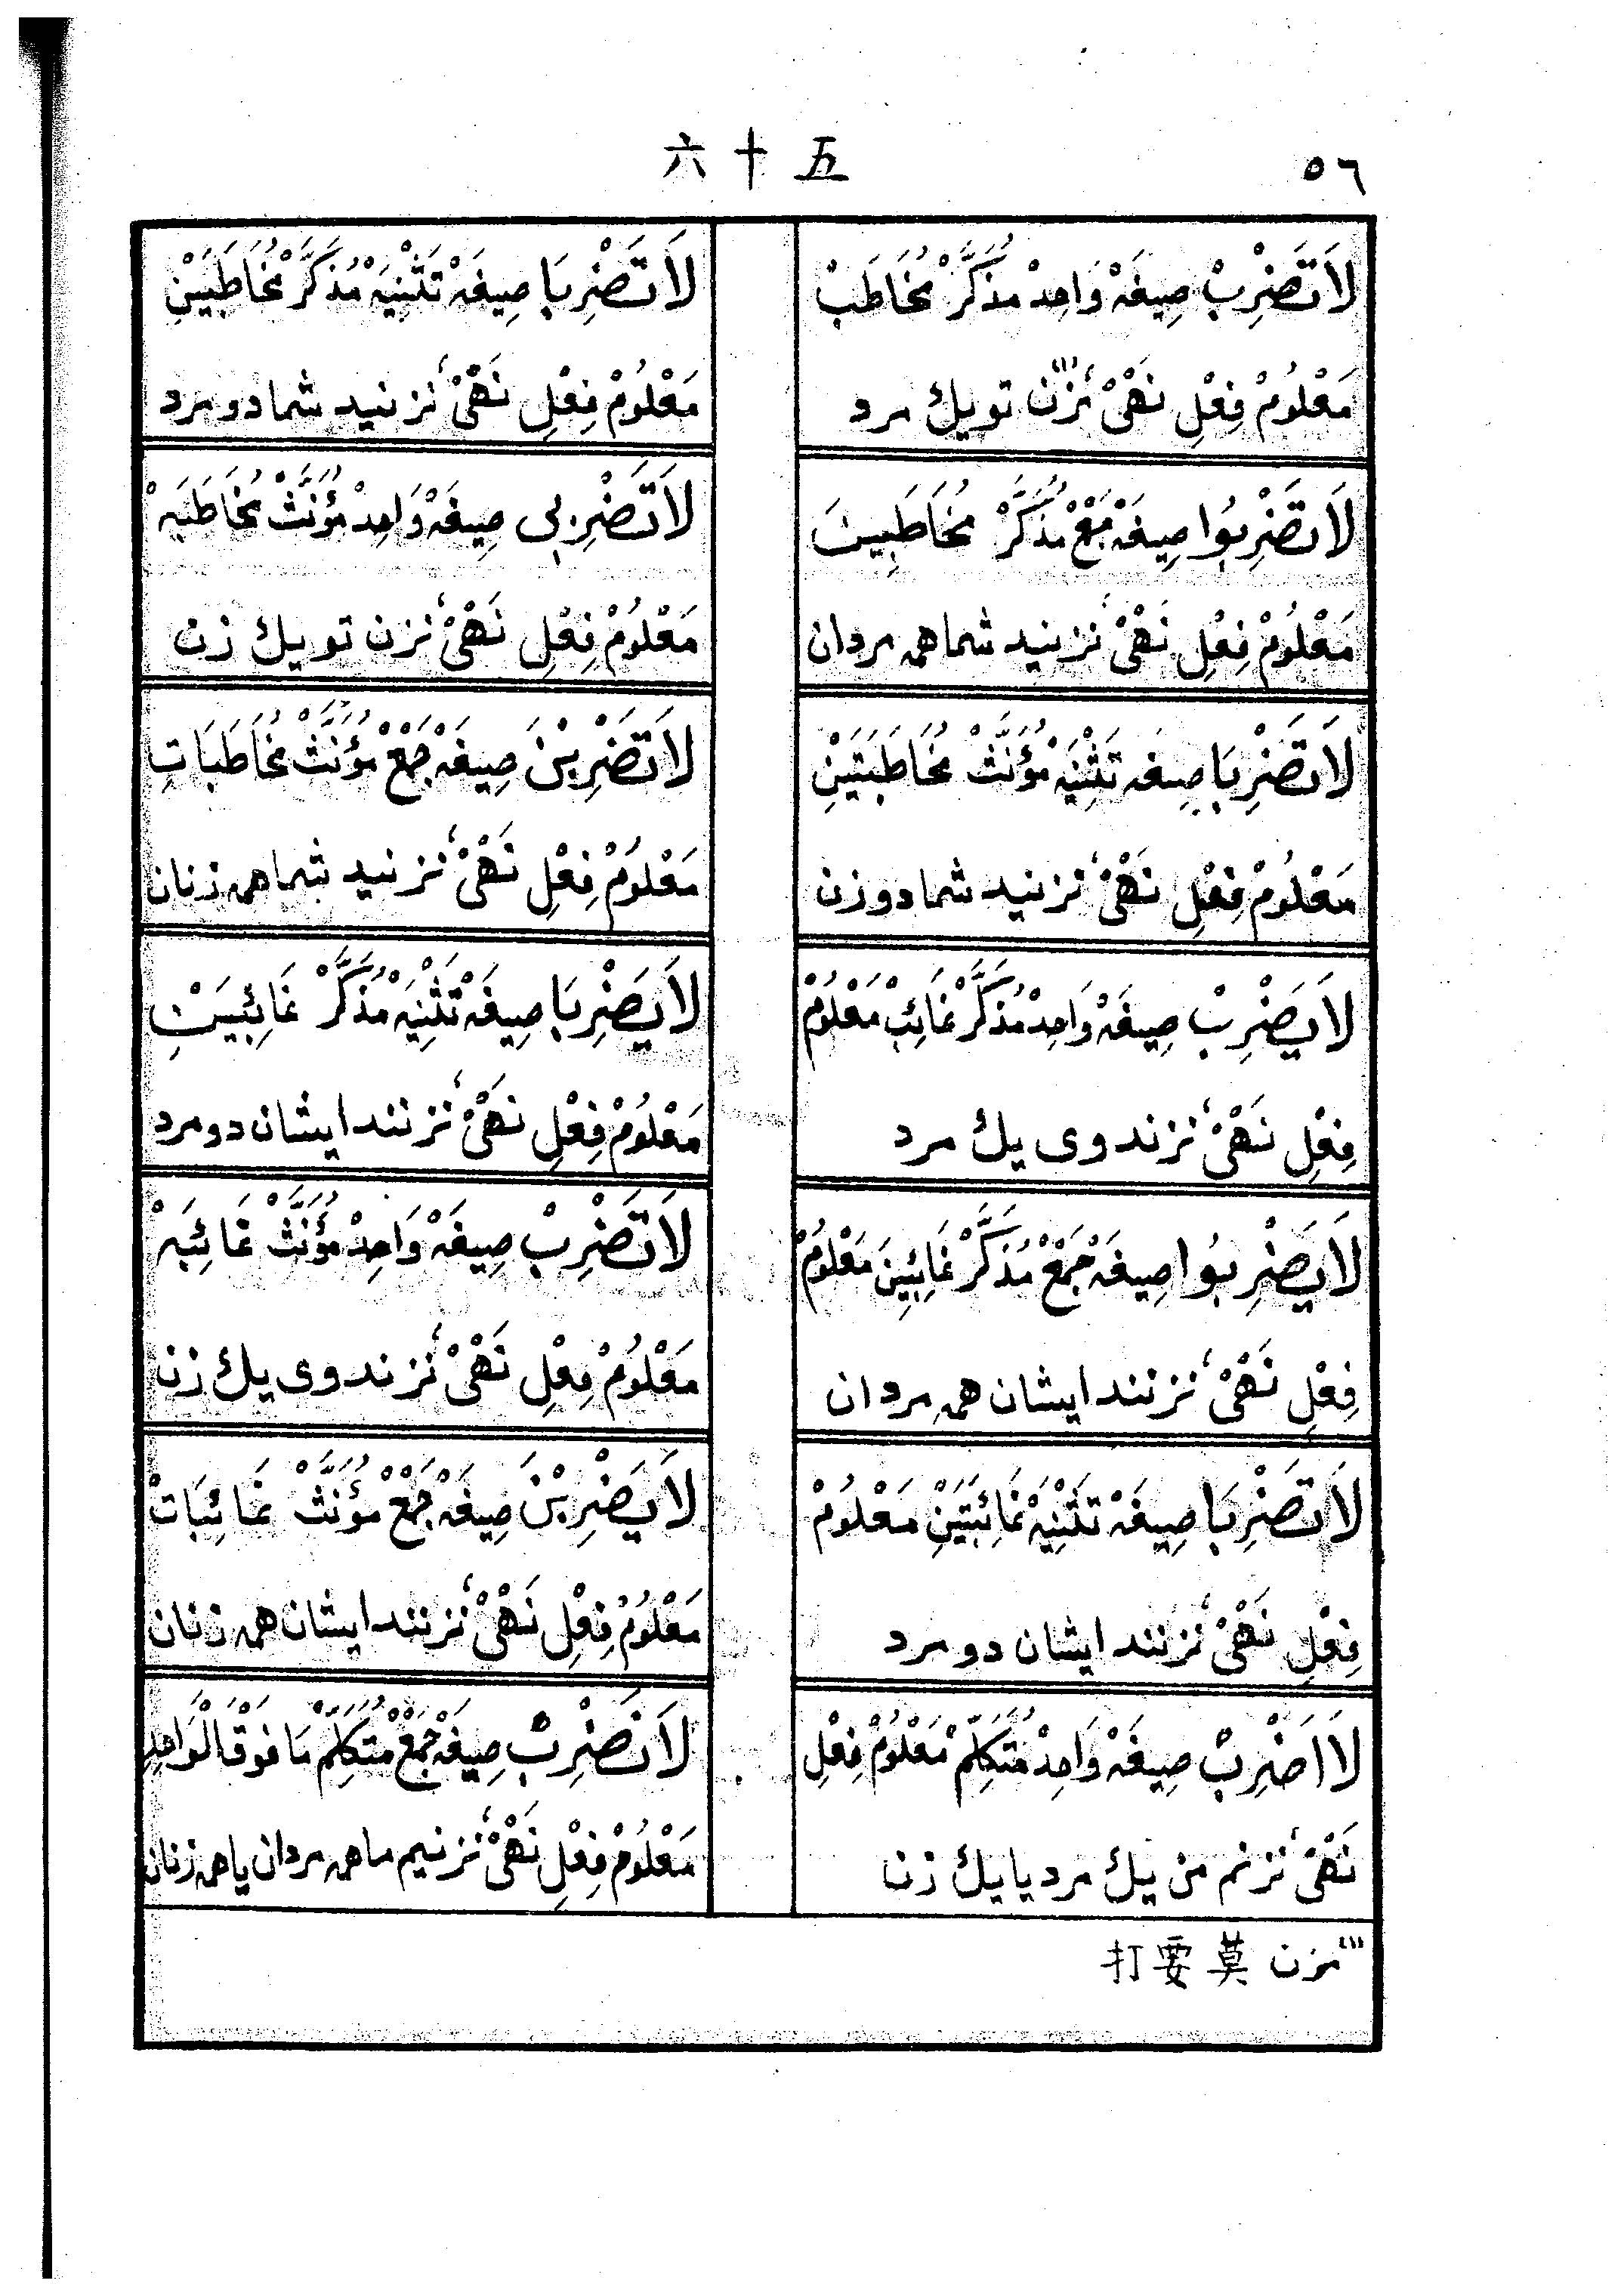 ٥٦
六十五
لاَتَضْرِبْ صِيغَهْ وَاحِدْ مُذَكَّرْ مُخَاطَبْ
مَعْلُومْ فِعْلِ نَهْیْ نَزَن⁽¹⁾ تو يك مرد
لاَتَضْرِبَا صِيغَهْ تَثْنِيَهْ مُذَكَّرْ مُخَاطَبَيْنِ
مَعْلُومْ فِعْلِ نَهْیْ نزنيد شما دو مرد
لاَتَضْرِبُوا صِيغَهْ جَمْعْ مُذَكَّرْ مُخَاطَبِينَ
مَعْلُومْ فِعْلِ نَهْیْ نزنيد شما همه مردان
لاَتَضْرِبِی صِيغَهْ وَاحِدْ مُؤَنَّثْ مُخَاطَبَهْ
مَعْلُومْ فِعْلِ نَهْیْ نزن تو يك زن
لاَتَضْرِبَا صِيغَه تَثْنِيَهْ مُؤَنَّثْ مُخَاطَبَتَيْنِ
مَعْلُومْ فِعْلِ نَهْیْ نزنيد شما دو زن
لاَتَضْرِبْنَ صِيغَهْ جَمْعْ مُؤَنَّثْ مُخَاطَبَاتِ
مَعْلُومْ فِعْلِ نَهْیْ نزنيد شما همه زنان
لاَيَضْرِبْ صِيغَهْ وَاحِدْ مُذَكَّرْ غَائِبْ مَعْلُومْ
فِعْلِ نَهْیْ نزند وی يك مرد
لاَيَضْرِبَا صِيغَهْ تَثْنِيَهْ مُذَكَّرْ غَائِبَيْنِ
مَعْلُومْ فِعْلِ نَهْیْ نزنند ايشان دو مرد
لاَيَضْرِبُوا صِيغَهْ جَمْعْ مُذَكَّرْ غَائِبِينَ مَعْلُومْ
فِعْلِ نَهْیْ نزنند ايشان همه مردان
لاَتَضْرِبْ صِيغَهْ وَاحِدْ مُؤَنَّثْ غَائِبَهْ
مَعْلُومْ فِعْلِ نَهْیْ نزند وی يك زن
لاَتَضْرِبَا صِيغَهْ تَثْنِيَهْ غَائِبَتَيْنِ مَعْلُومْ
فِعْلِ نَهْیْ نزنند ايشان دو مرد
لاَيَضْرِبْنَ صِيغَهْ جَمْعْ مُؤَنَّثْ غَائِبَاتْ
مَعْلُومْ فِعْلِ نَهْیْ نزنند ايشان همه زنان
لاَاَضْرِبْ صِيغَهْ وَاحِدْ مُتَكَلِّمْ مَعْلُومْ فِعْلِ
نَهْیْ نزنم من يك مرد يا يك زن
لاَنَضْرِبْ صِيغَهْ جَمْعْ مُتَكَلِّمْ مَا فَوْقَالْوَاحِدِ
مَعْلُومْ فِعْلِ نَهْیْ نزنيم ما همه مردان يا همه زنان
⁽¹⁾ نزن 莫要打